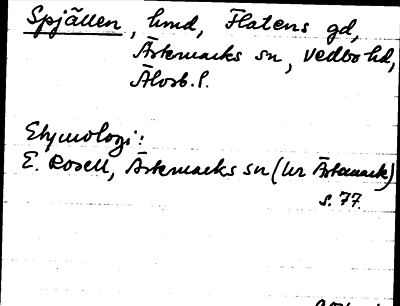 Spjällen, hmd, Flatens gd,
Ärtemarks sn, Vedbo hd,
Älvsb. l.
Etymologi:
E. Rosell, Ärtemarks sn (ur Ärtemark)
s. 77.